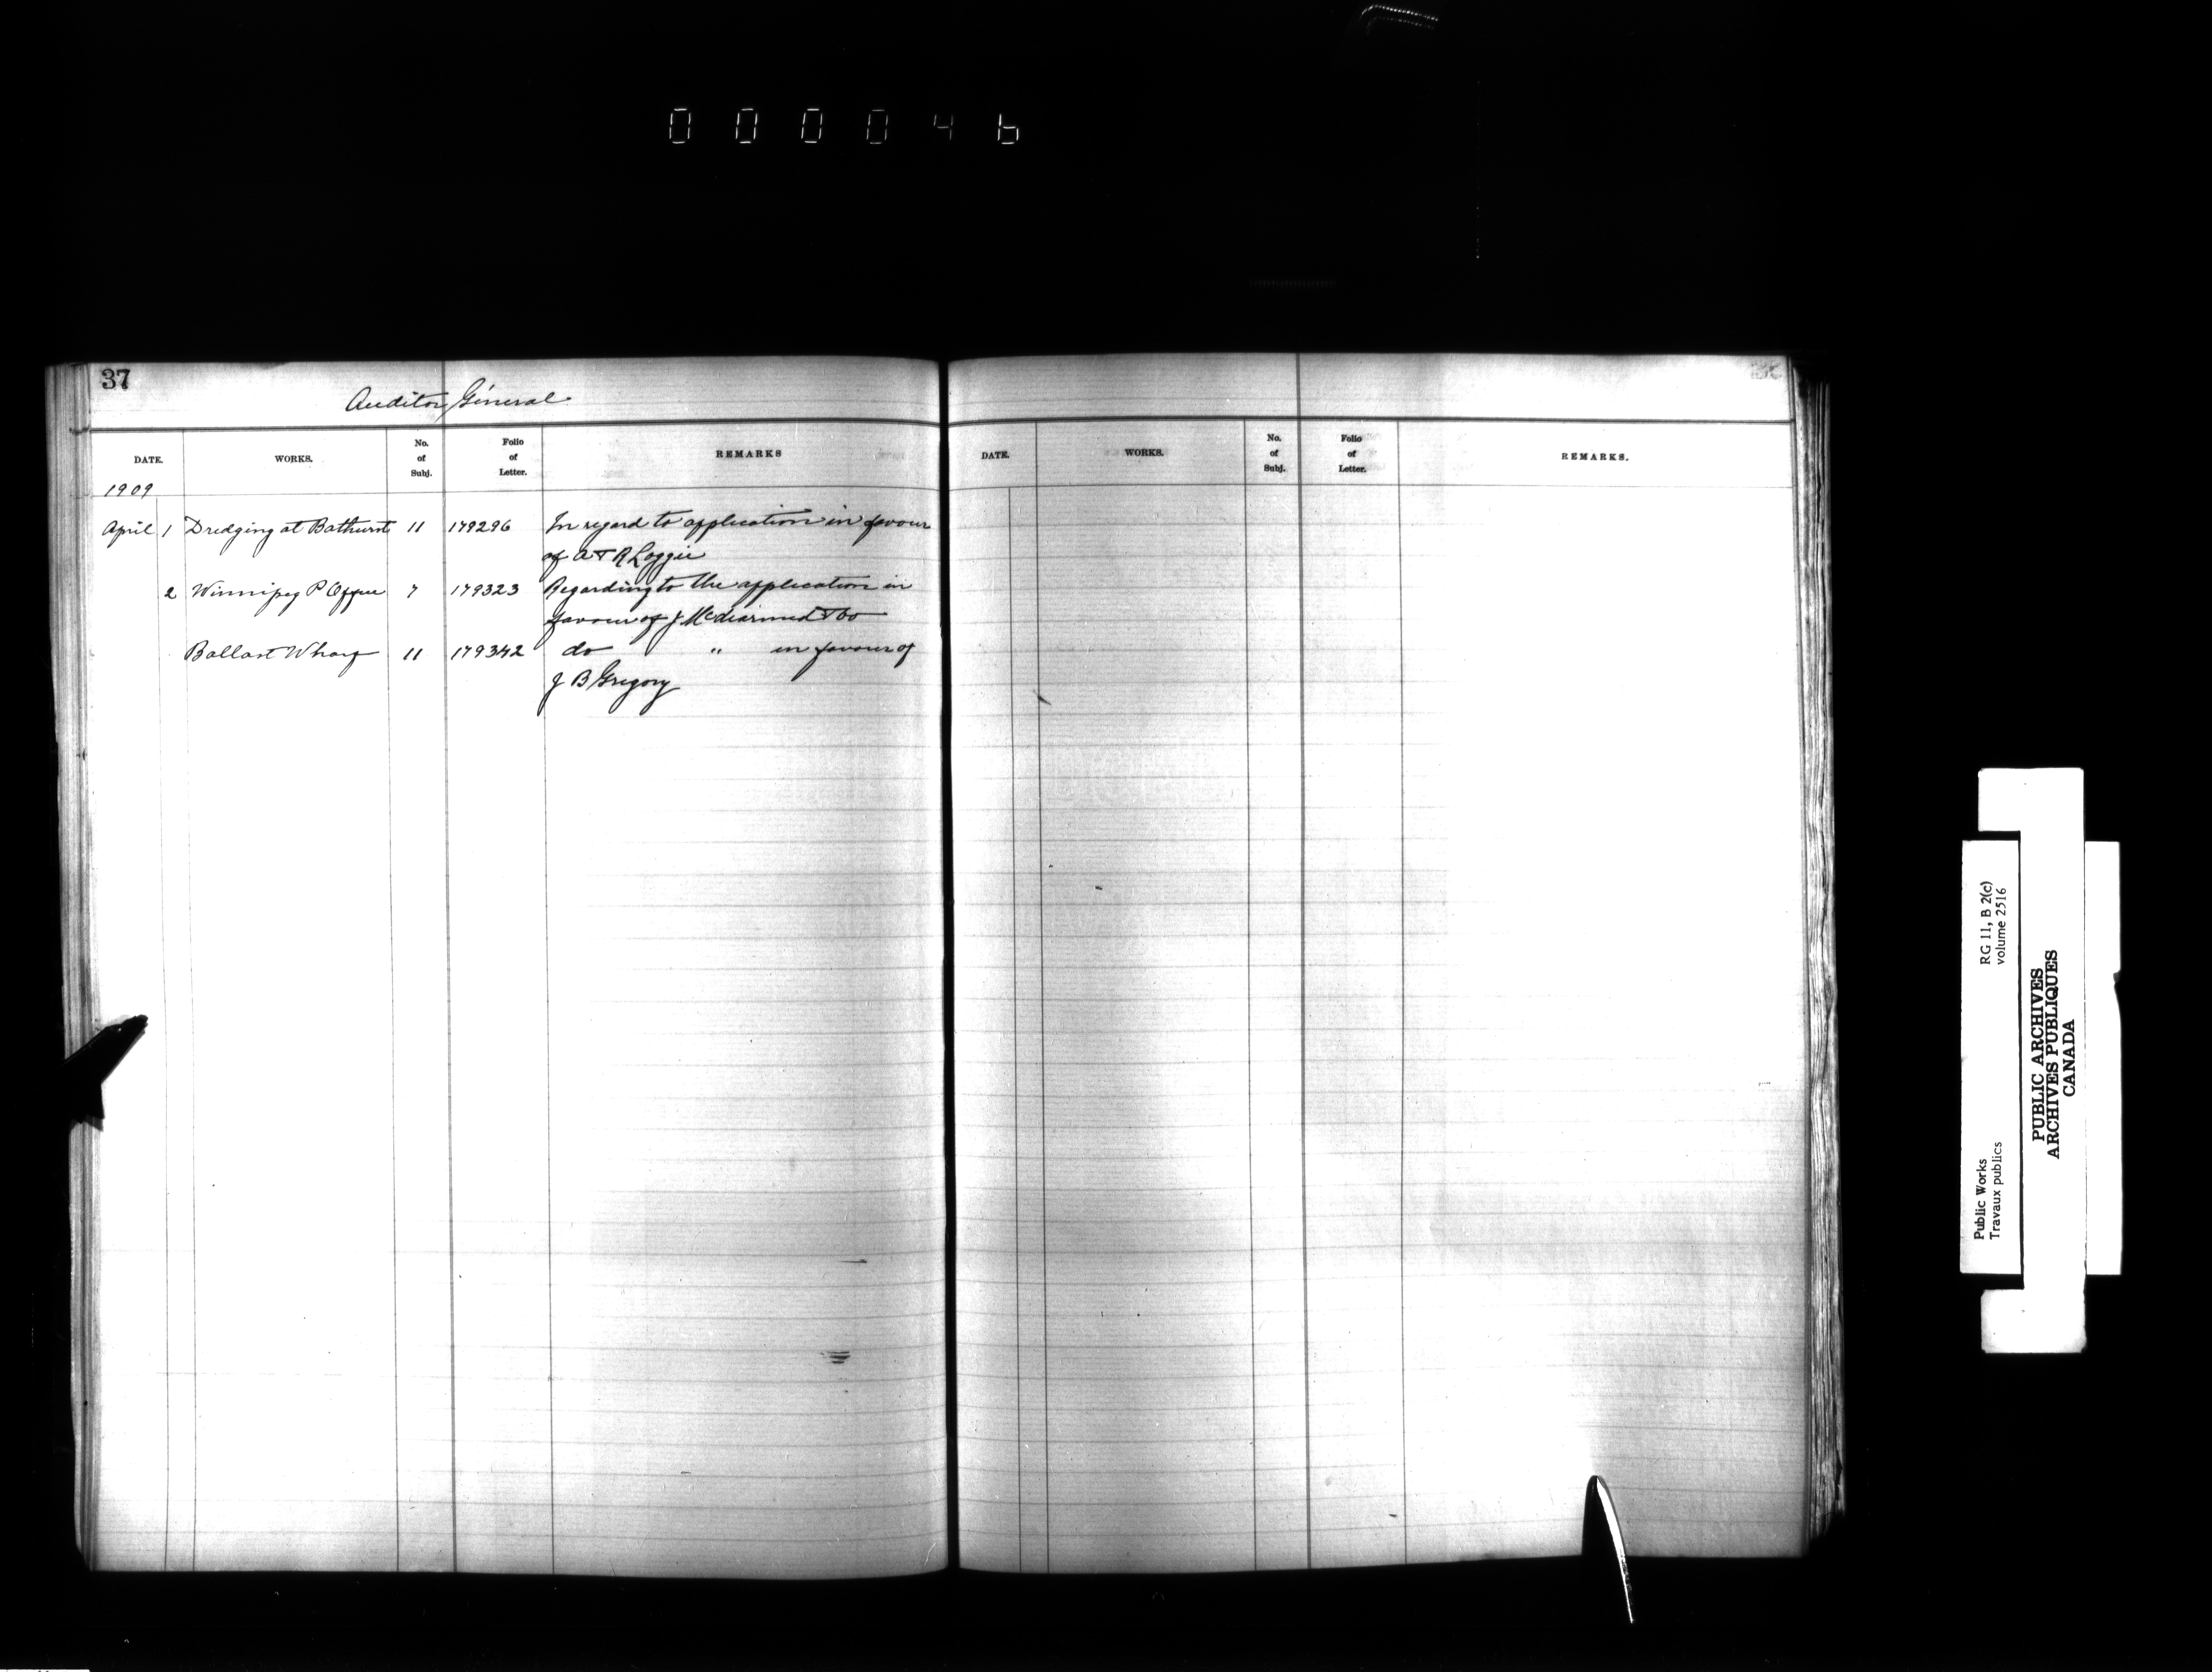 000046
37
Auditor General
DATE. WORKS. No. of Subj. Folio of Letter. REMARKS
1909
April 1 Dredging at Bathurst 11 179296 In regard to application in favour
of A & R Loggie
2 Winnipeg P Office 7 179323 Regarding to the application in
favour of J McDiarmid & Co
Ballast Wharf 11 179342 do " in favour of
J B Gregory
DATE. WORKS. No. of Subj. Folio of Letter. REMARKS.
Public Works
Travaux publics
RG 11, B 2(c)
volume 2516
PUBLIC ARCHIVES
ARCHIVES PUBLIQUES
CANADA